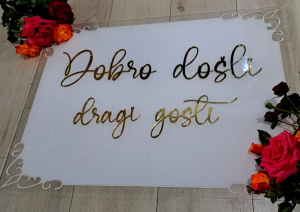 Dobro došli
dragi gosti